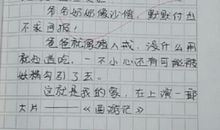 爷爷奶奶像沙僧，默默付出
不求回报！
爸爸就像猪八戒，没什么用
就知道吃，一不小心还有可能被
妖精勾引了去。
这就是我的家，在上演一部
大片——《西游记》